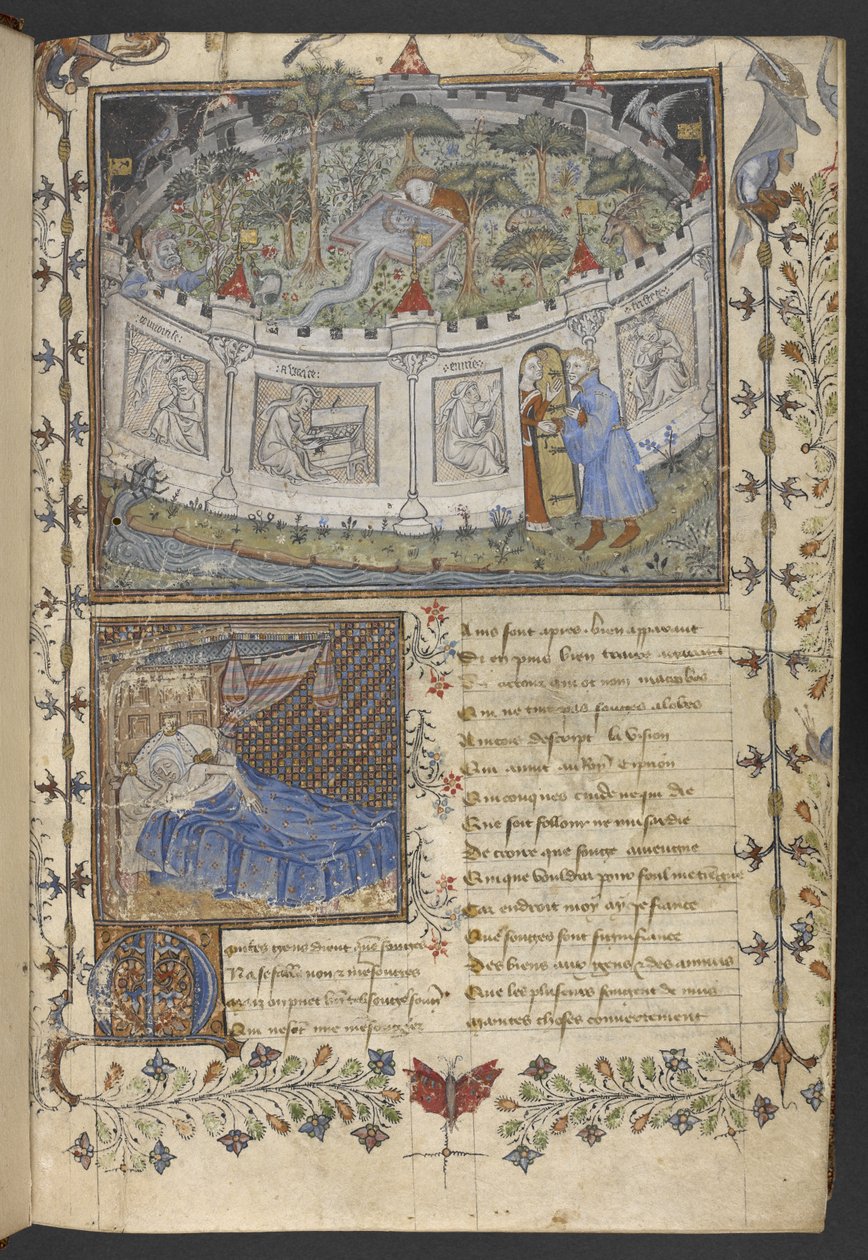 :auarice:
:enuie:
tristece:
Maintes gens dient que songes
Na se fable non & mensonges
Mais on puet bien telz songes
Qui ne sont mie mensongier
Ains sont apres bien apparant
Si en puis bien traire a garant
acteur qui ot nom macrobes
Qui ne tint pas songes a lobes
Aincois descript la vision
Qui auint au Roy Cipion
Quiconques cuide ne qui die
Que soit folleur ne musardie
De croire que songe auiengne
Qui que vouldra pour fol men tiengne
Car endroit moy ay ie fiance
Que songes sont signifiance
Des biens aux gens & des annuis
Que les pluseurs songent de nuis
Maintes choses couuertement